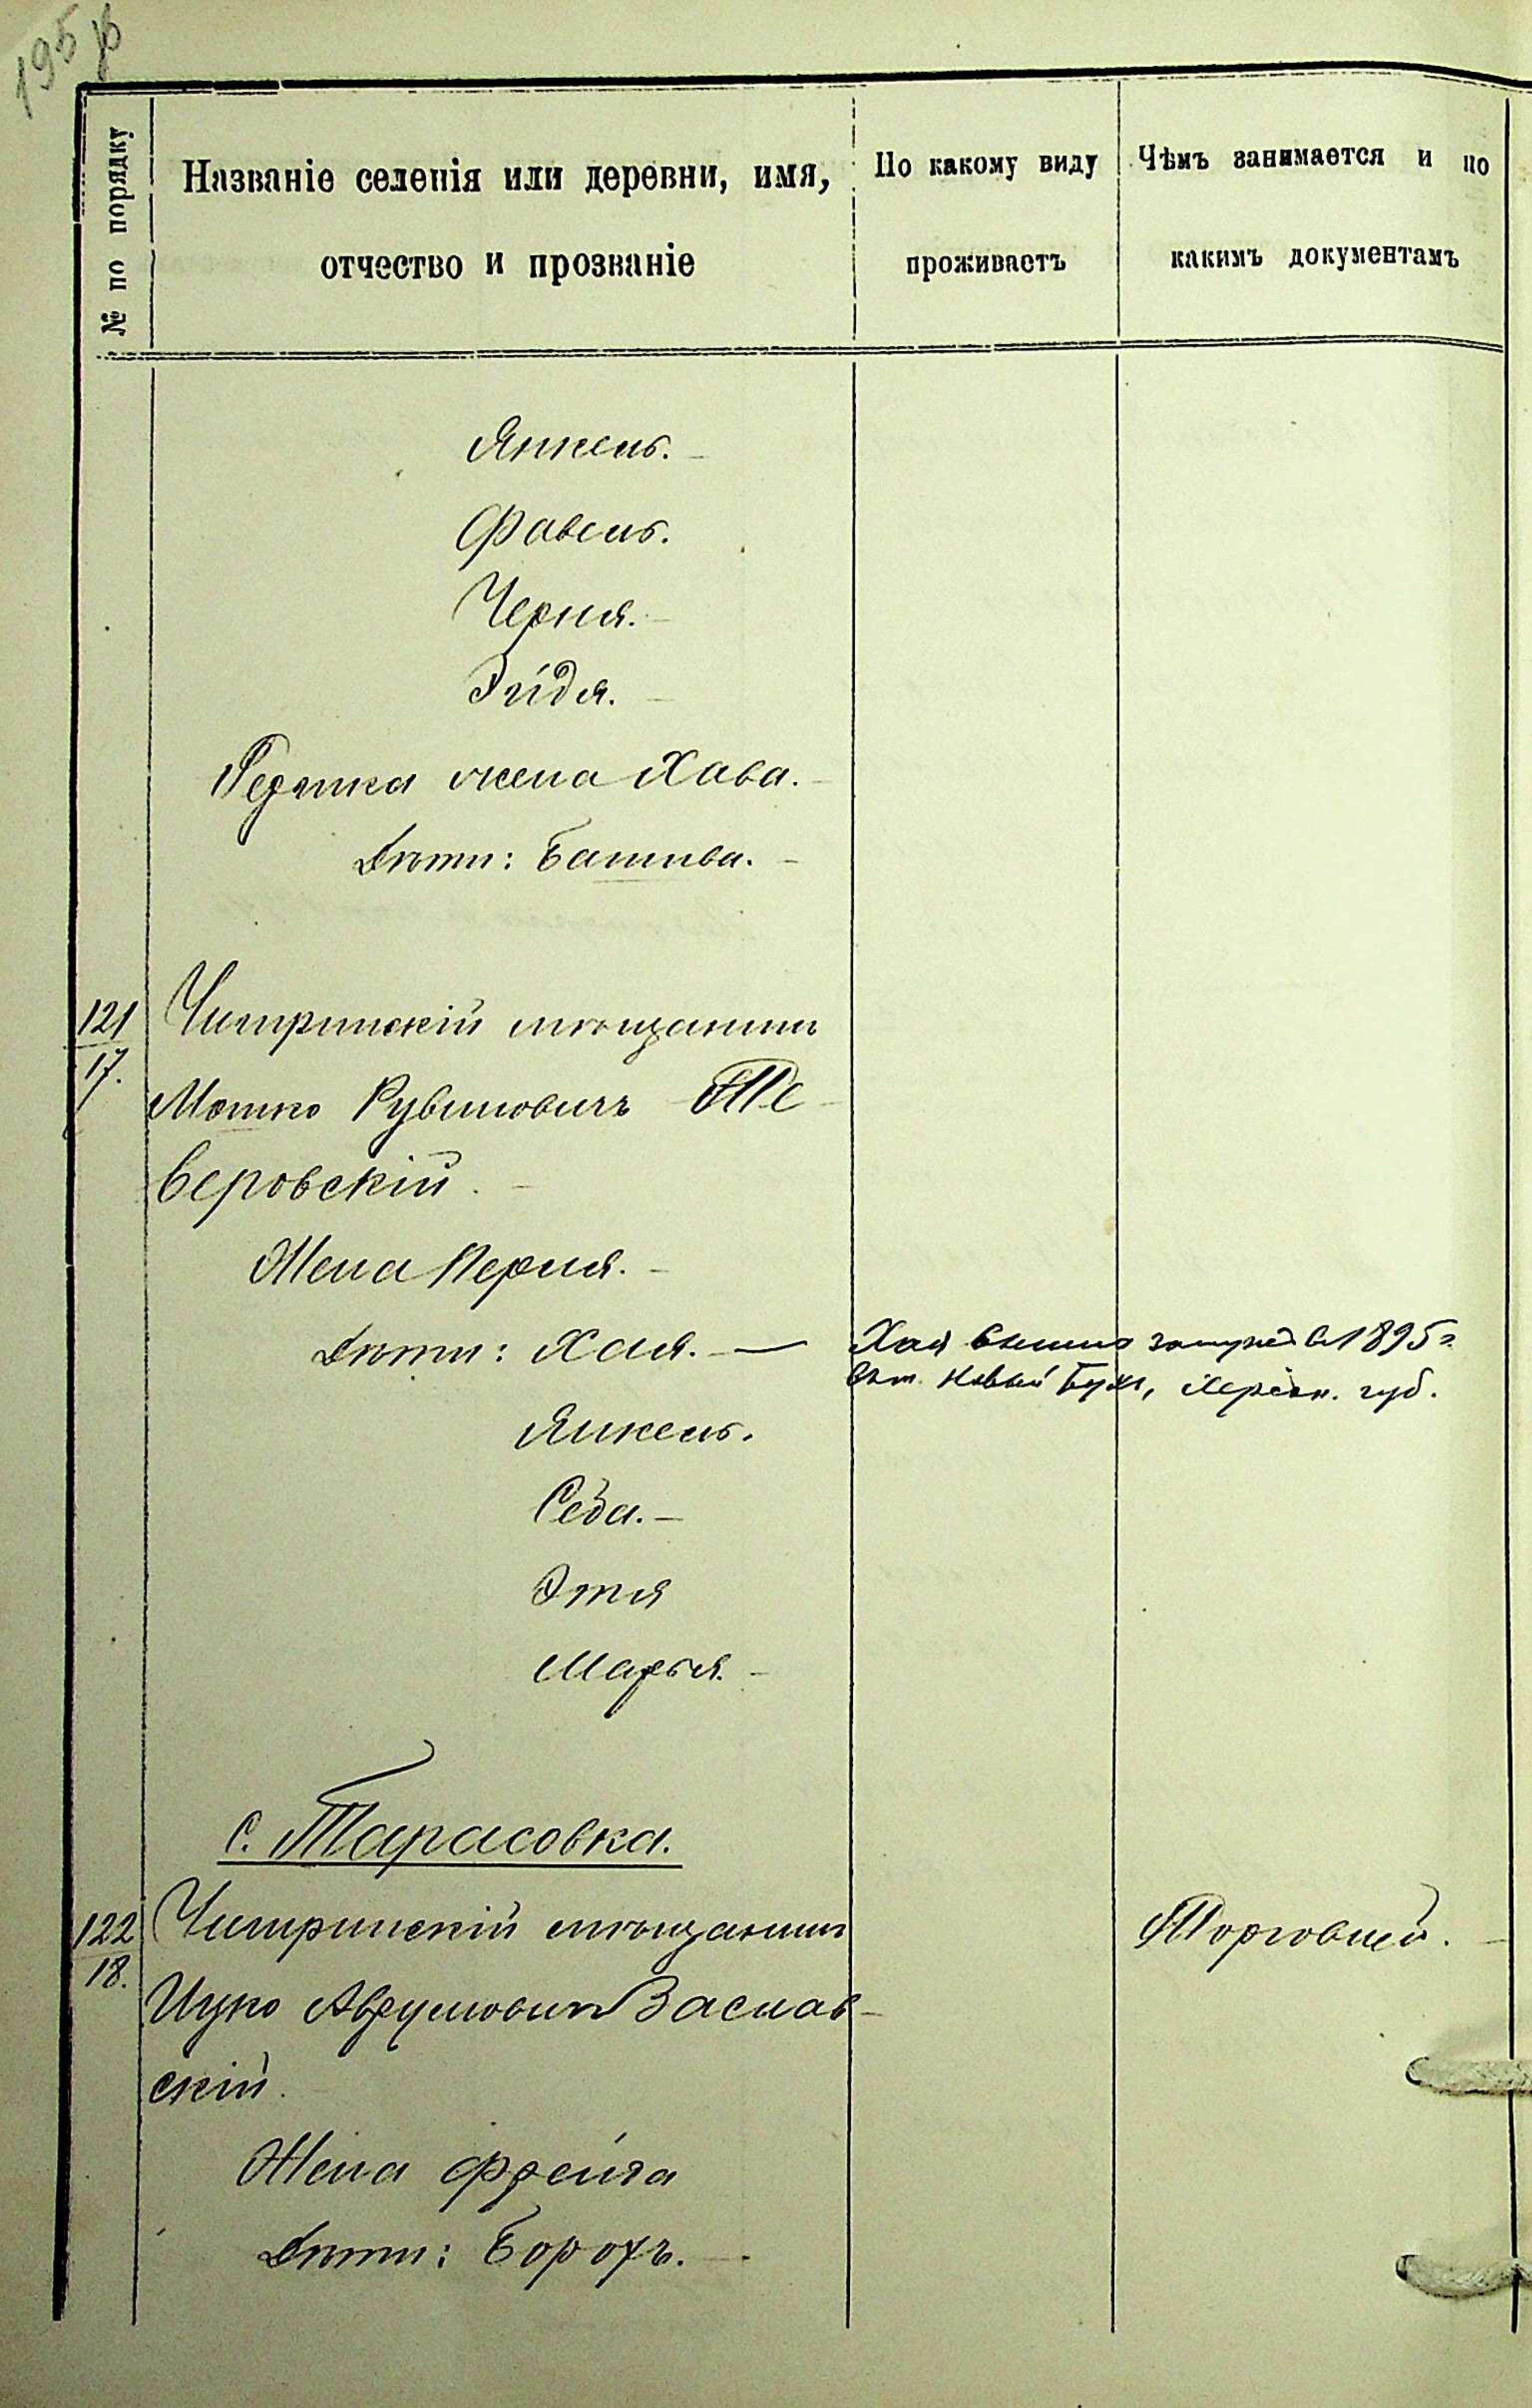 195 об
№ по порядку
Названіе селенія или деревни, имя,
отчество и прозваніе
По какому виду
проживаетъ
Чѣмъ занимается и по
какимъ документамъ
Янкель. —
Фавель.
Черня. —
Эйдя. —
жена Хава. —
Дѣти: Батшва. —
121
17.
Чигиринскій мѣщанинъ
Мошко Рувиновичъ Те-
веровскій. —
Жена Перля. —
Дѣти: Хая. —
Хая вышла замужъ въ 1895 г.
въ м. Новый Бугъ, Херсон. губ.
Янкель.
Седа. —
Этя
Марья. —
с. Тарасовка.
122
18.
Чигиринскій мѣщанинъ
Торговлей. —
Ицко Аврумовичъ Заслав-
скій.
Жена Фрейга
Дѣти: Борохъ. —